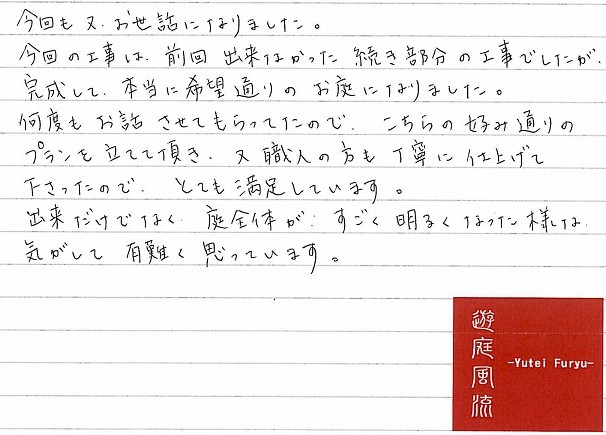 今回も又、お世話になりました。
今回の工事は、前回出来なかった続き部分の工事でしたが、
完成して、本当に希望通りのお庭になりました。
何度もお話させてもらってたので、こちらの好み通りの
プランを立てて頂き、又職人の方も丁寧に仕上げて
下さったので、とても満足しています。
出来だけでなく、庭全体が、すごく明るくなった様な、
気がして有難く思っています。
遊庭風流
-Yutei Furyu-